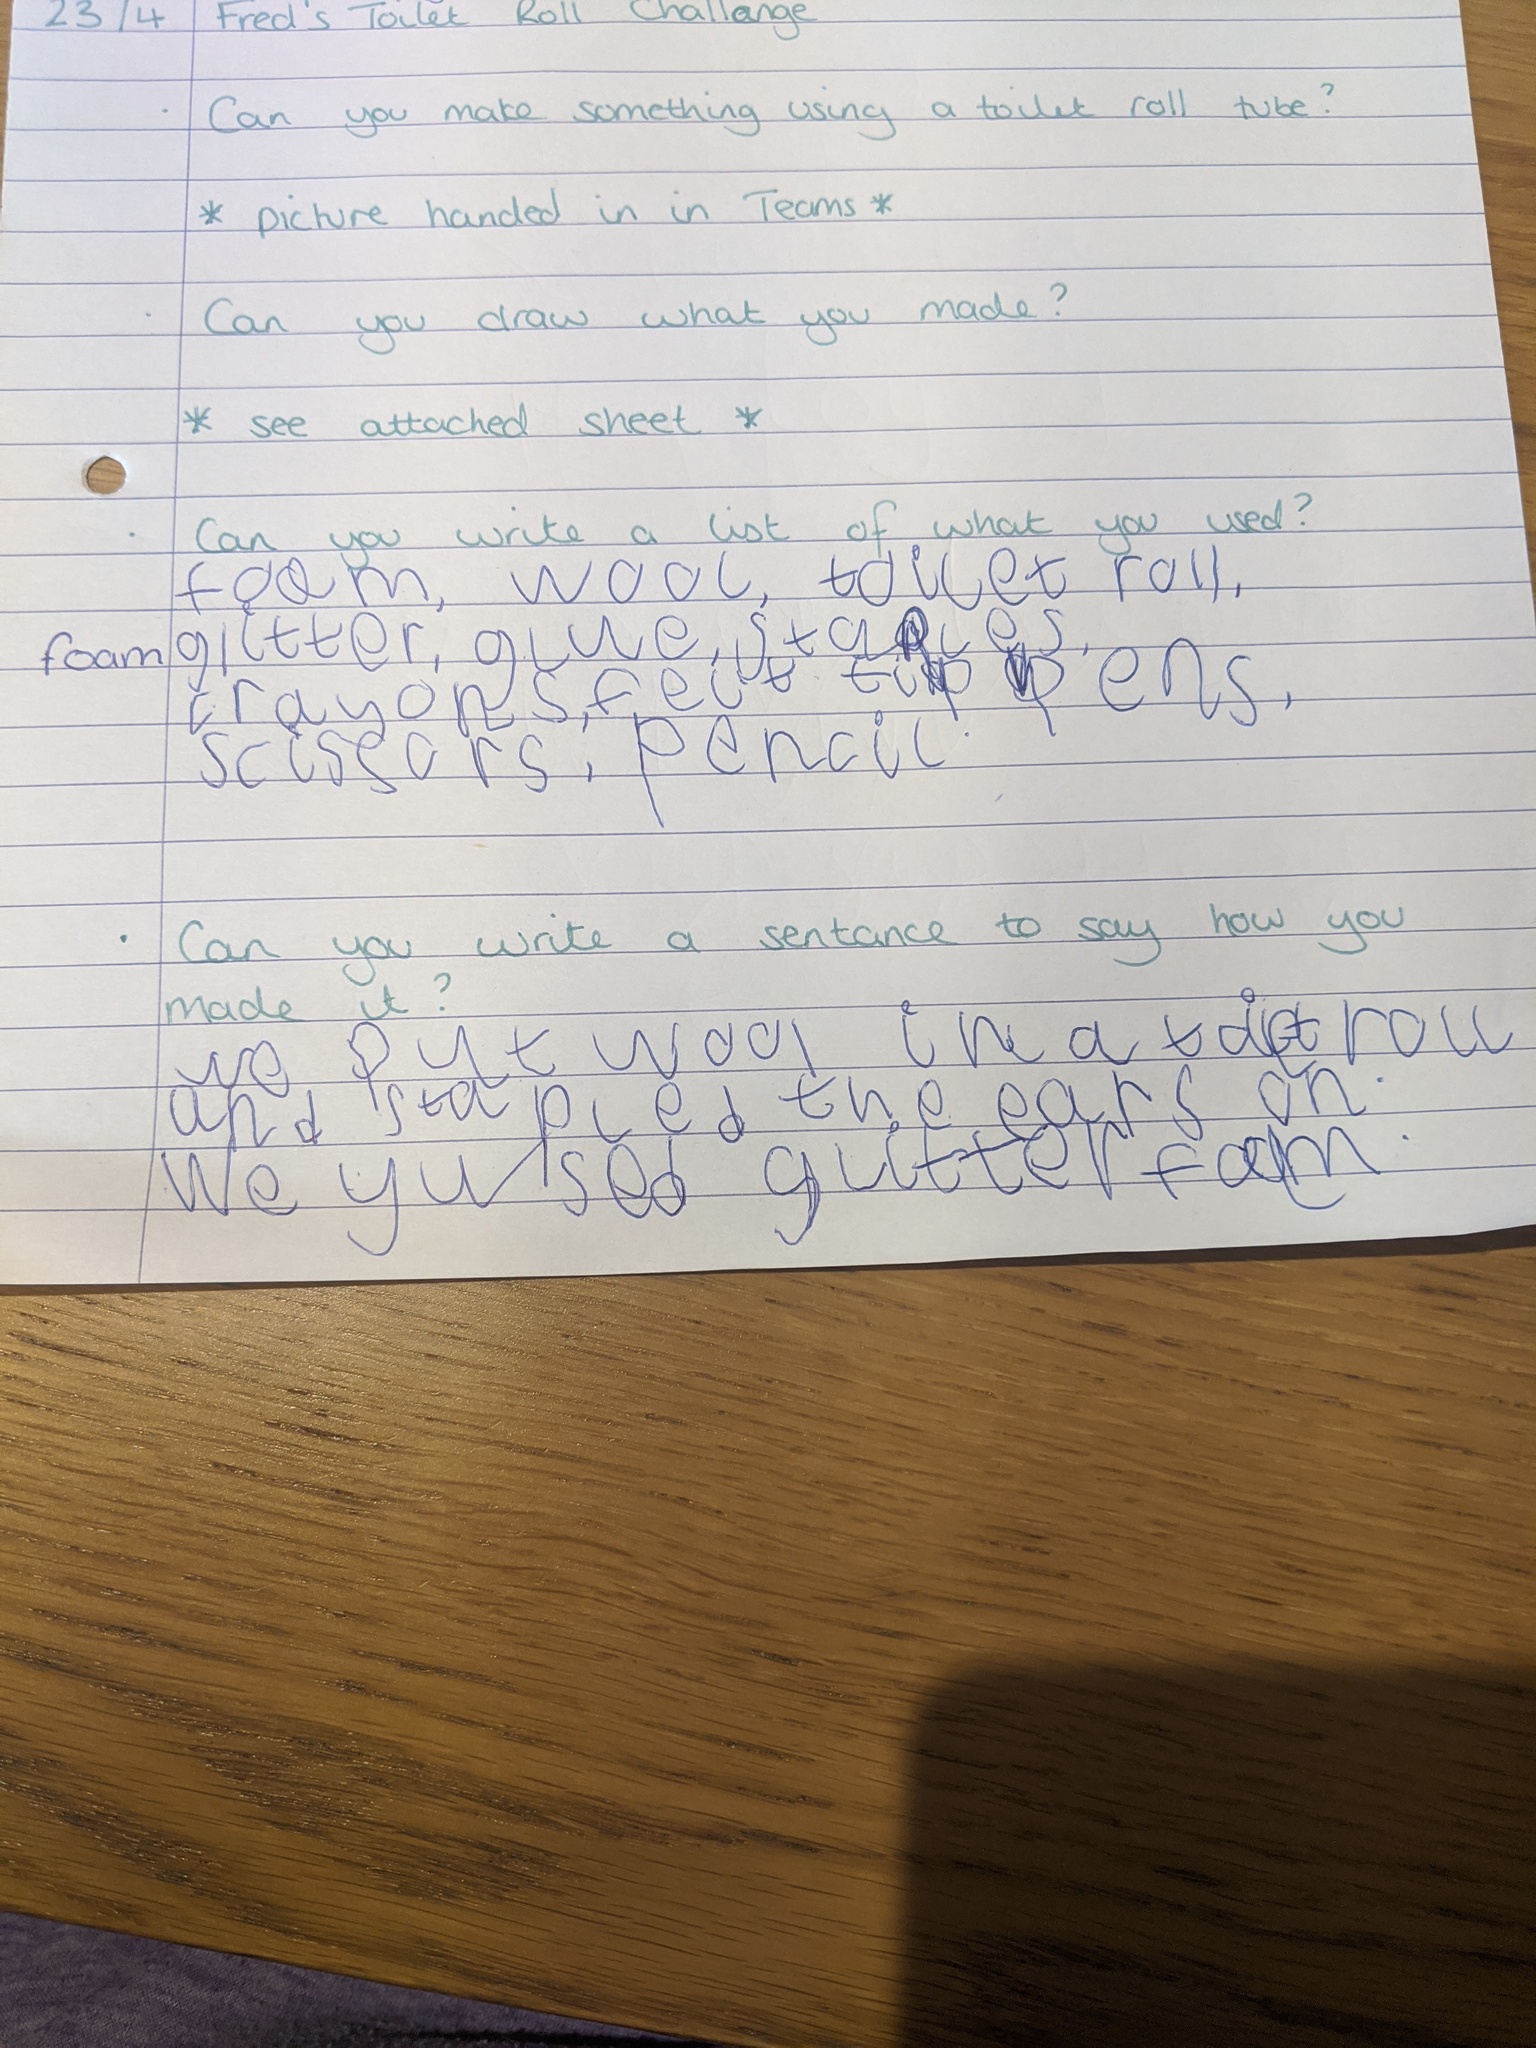 23/4 Fred's Toilet Roll Challange
· Can you make something using a toilet roll tube?
* picture handed in in Teams *
· Can you draw what you made?
* see attached sheet *
· Can you write a list of what you used?
foam, wool, toilet roll,
foam glitter, glue, staples,
crayons, felt tip pens,
scisears, pencil.
· Can you write a sentance to say how you
made it?
we put wool in a roll
and stapled the ears on.
We yused glitter foam.